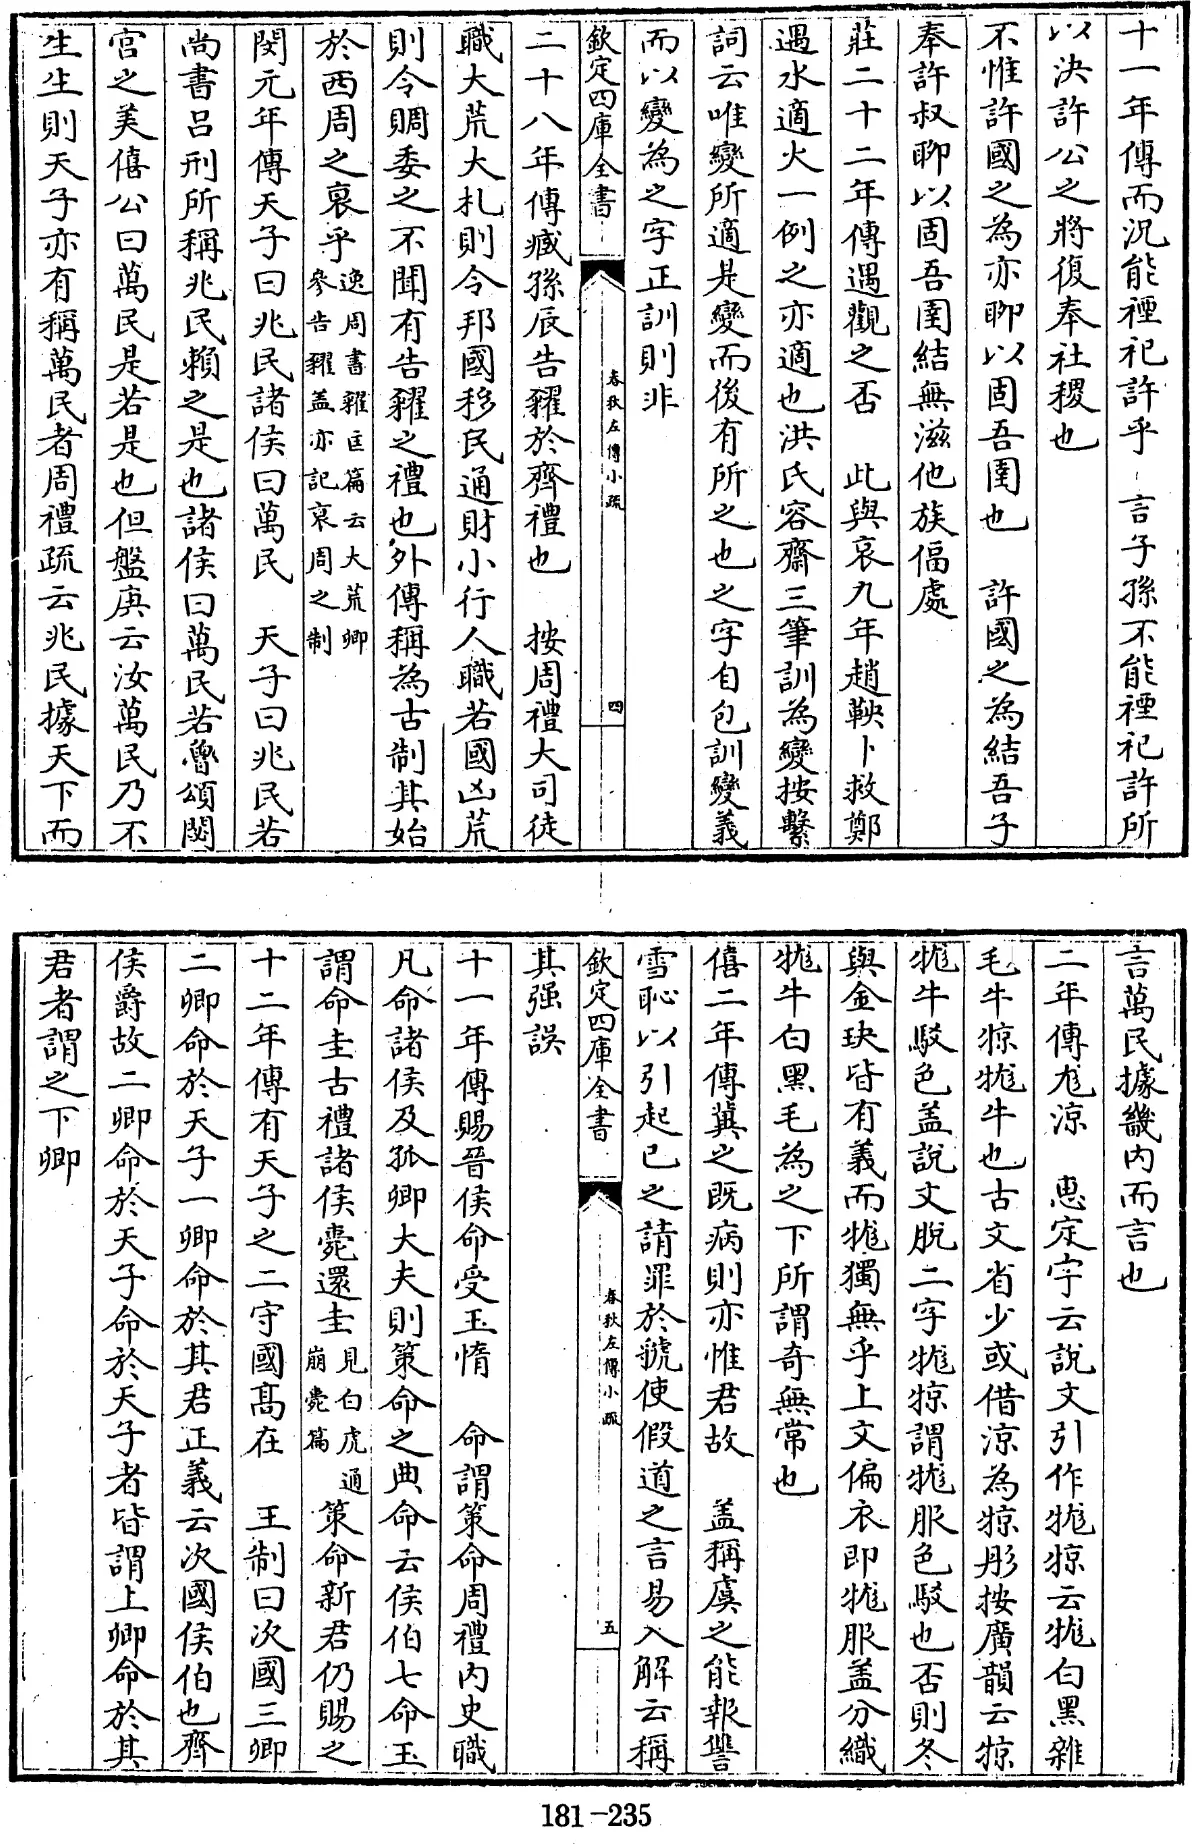 十一年傳而況能禋祀許乎 言子孫不能禋祀許所
以決許公之將復奉社稷也
不惟許國之為亦聊以固吾圉也 許國之為結吾子
奉許叔聊以固吾圉結無滋他族偪處
莊二十二年傳遇觀之否 此與哀九年趙鞅卜救鄭
遇水適火一例之亦適也洪氏容齋三筆訓為變按繫
詞云唯變所適是變而後有所之也之字自包訓變義
而以變為之字正訓則非
欽定四庫全書 春秋左傳小疏 四
二十八年傳臧孫辰告糴於齊禮也 按周禮大司徒
職大荒大札則令邦國移民通財小行人職若國凶荒
則令賙委之不聞有告糴之禮也外傳稱為古制其始
於西周之衰乎逸周書糴匡篇云大荒卿參告糴盖亦記衰周之制
閔元年傳天子曰兆民諸侯曰萬民 天子曰兆民若
尚書呂刑所稱兆民賴之是也諸侯曰萬民若魯頌閟
宫之美僖公曰萬民是若是也但盤庚云汝萬民乃不
生生則天子亦有稱萬民者周禮疏云兆民據天下而
言萬民據畿内而言也
二年傳尨涼 惠定宇云說文引作牻𤚩云牻白黑雜
毛牛𤚩牻牛也古文省少或借涼為𤚩彤按廣韻云𤚩
牻牛駁色盖說文脫二字牻𤚩謂牻服色駁也否則冬
與金玦皆有義而牻獨無乎上文偏衣即牻服盖分織
牻牛白黑毛為之下所謂奇無常也
僖二年傳冀之既病則亦惟君故 盖稱虞之能報讐
雪恥以引起已之請罪於虢使假道之言易入解云稱
欽定四庫全書 春秋左傳小疏 五
其强誤
十一年傳賜晉侯命受玉惰 命謂策命周禮内史職
凡命諸侯及孤卿大夫則策命之典命云侯伯七命玉
謂命圭古禮諸侯薨還圭見白虎通崩薨篇策命新君仍賜之
十二年傳有天子之二守國高在 王制曰次國三卿
二卿命於天子一卿命於其君正義云次國侯伯也齊
侯爵故二卿命於天子命於天子者皆謂上卿命於其
君者謂之下卿
181-235